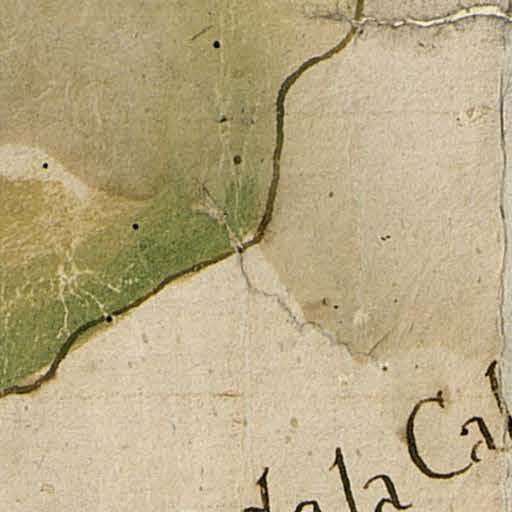 de la Cal